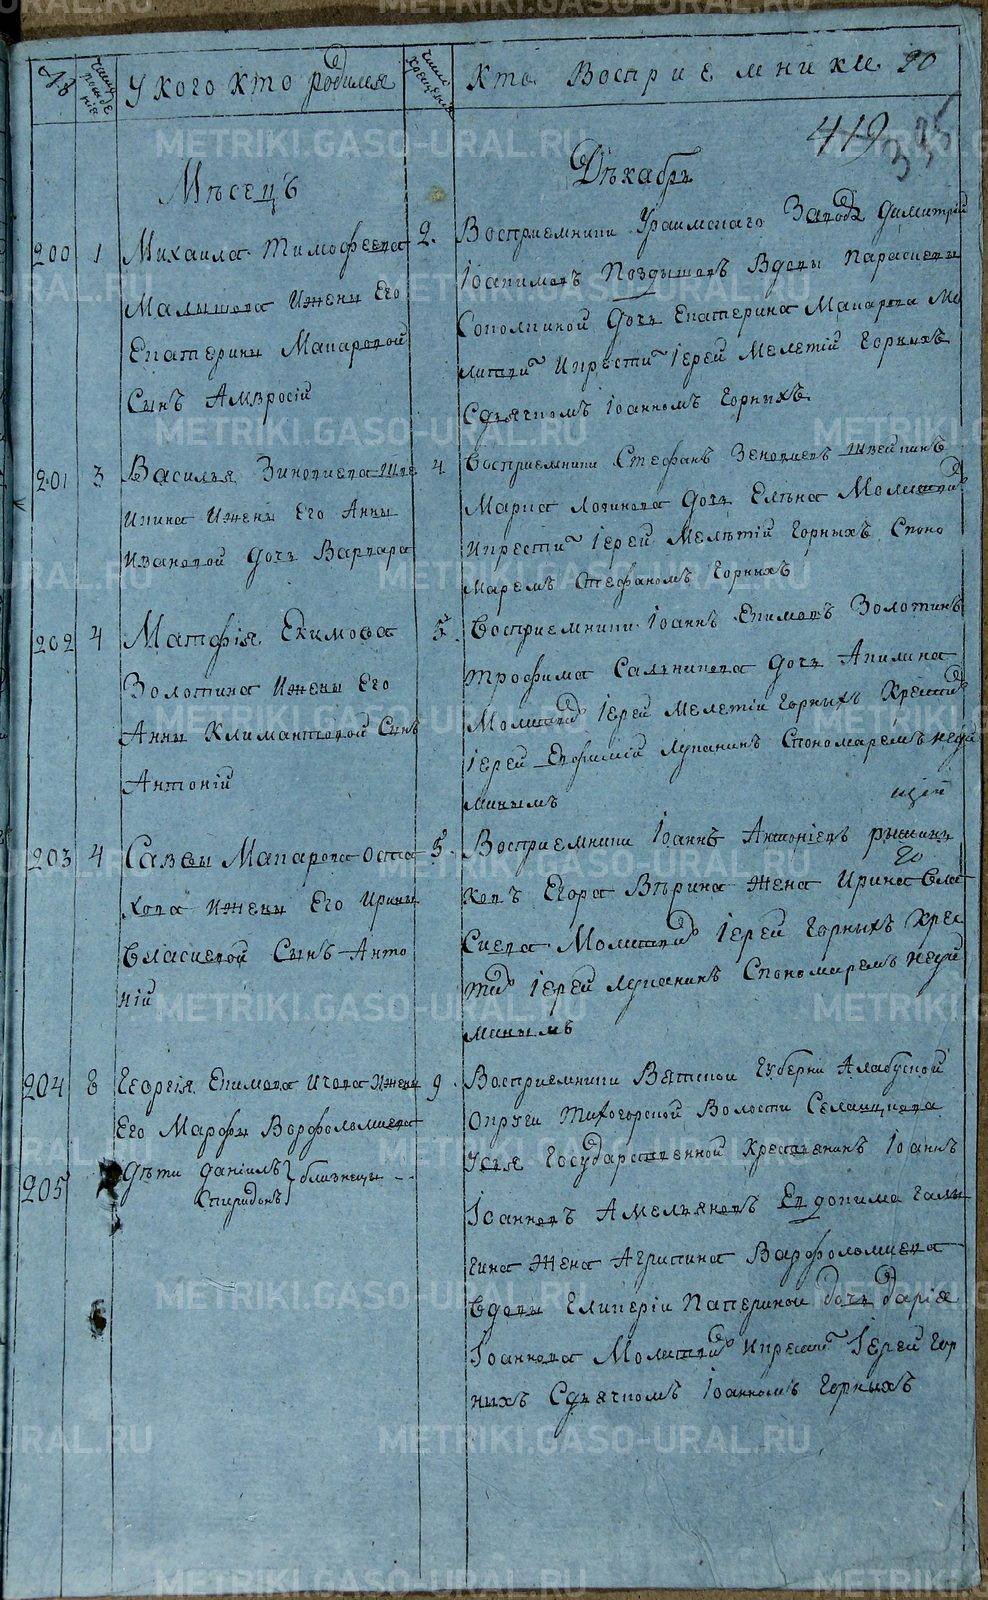 № Число рождения У кого кто родился Число крещения Кто Восприемники 20
419
335
Мѣсецъ Декабрь
200 1 Михаила Тимофеева 2.
Малышева Ижены Его
Екатерины Макаровой
Сынъ Амвросiй
Восприемники Уфимскаго Завода Димитрiй
Iоакимовъ Поздышевъ Вдовы Парасковы
Сополкиной дочь Екатерина Макарова Мо
литв. Икрести Iерей Мелетiй Горныхъ
Сдьячкомъ Iоанномъ Горныхъ
201 3 Василья Зиновиева Шве 4
икина Ижены Его Анны
Ивановой дочь Варвара
Восприемники Стефанъ Зеновиевъ Швейкинъ
Марка Логинова дочь Елѣна Молитв.
Икрести Iерей Мелѣтiй Горныхъ Споно
маремъ Стефаномъ Горныхъ
202 4 Матфiя Екимова 5.
Золотина Ижены Его
Анны Климантовой Сынъ
Антонiй
Восприемники Iоаннъ Екимовъ Золотинъ
Трофима Сальникова дочь Акилина
Молитв. Iерей Мелетiй Горныхъ Крестил
Iерей Евфимiй Лупанинъ Спономаремъ Неуй
минымъ
203 4 Саввы Макарова Оста 5.
хова Ижены Его Ирины
Власиевой Сынъ Анто
нiй
Восприемники Iоаннъ Антонiевъ
ковъ Егора Вѣрина жена Ирина Вла
сиева Молитв. Iерей Горныхъ Крес
тил Iерей Лупанинъ Спономаремъ Неуй
минымъ
204 8 Георгiя Екимова Ичева Ижены 9.
Его Марфы Ворфоломиева
205 дѣти данiилъ
Спиридонъ } близнецы --
Восприемники Вятской Губернiи Алабуской
Округи Тихогорской Волости Селаицкова
Устья Государственной Крестьенинъ Iоаннъ
Iоанновъ Амельяновъ Евдокима Галы
гина жена Агрипина Варфоломиева
Вдовы Гликерiи Пакериной дочь дарiя
Iоаннова Молитв. Икрести Iерей Гор
ныхъ Сдьячкомъ Iоанномъ Горныхъ
METRIKI.GASO-URAL.RU